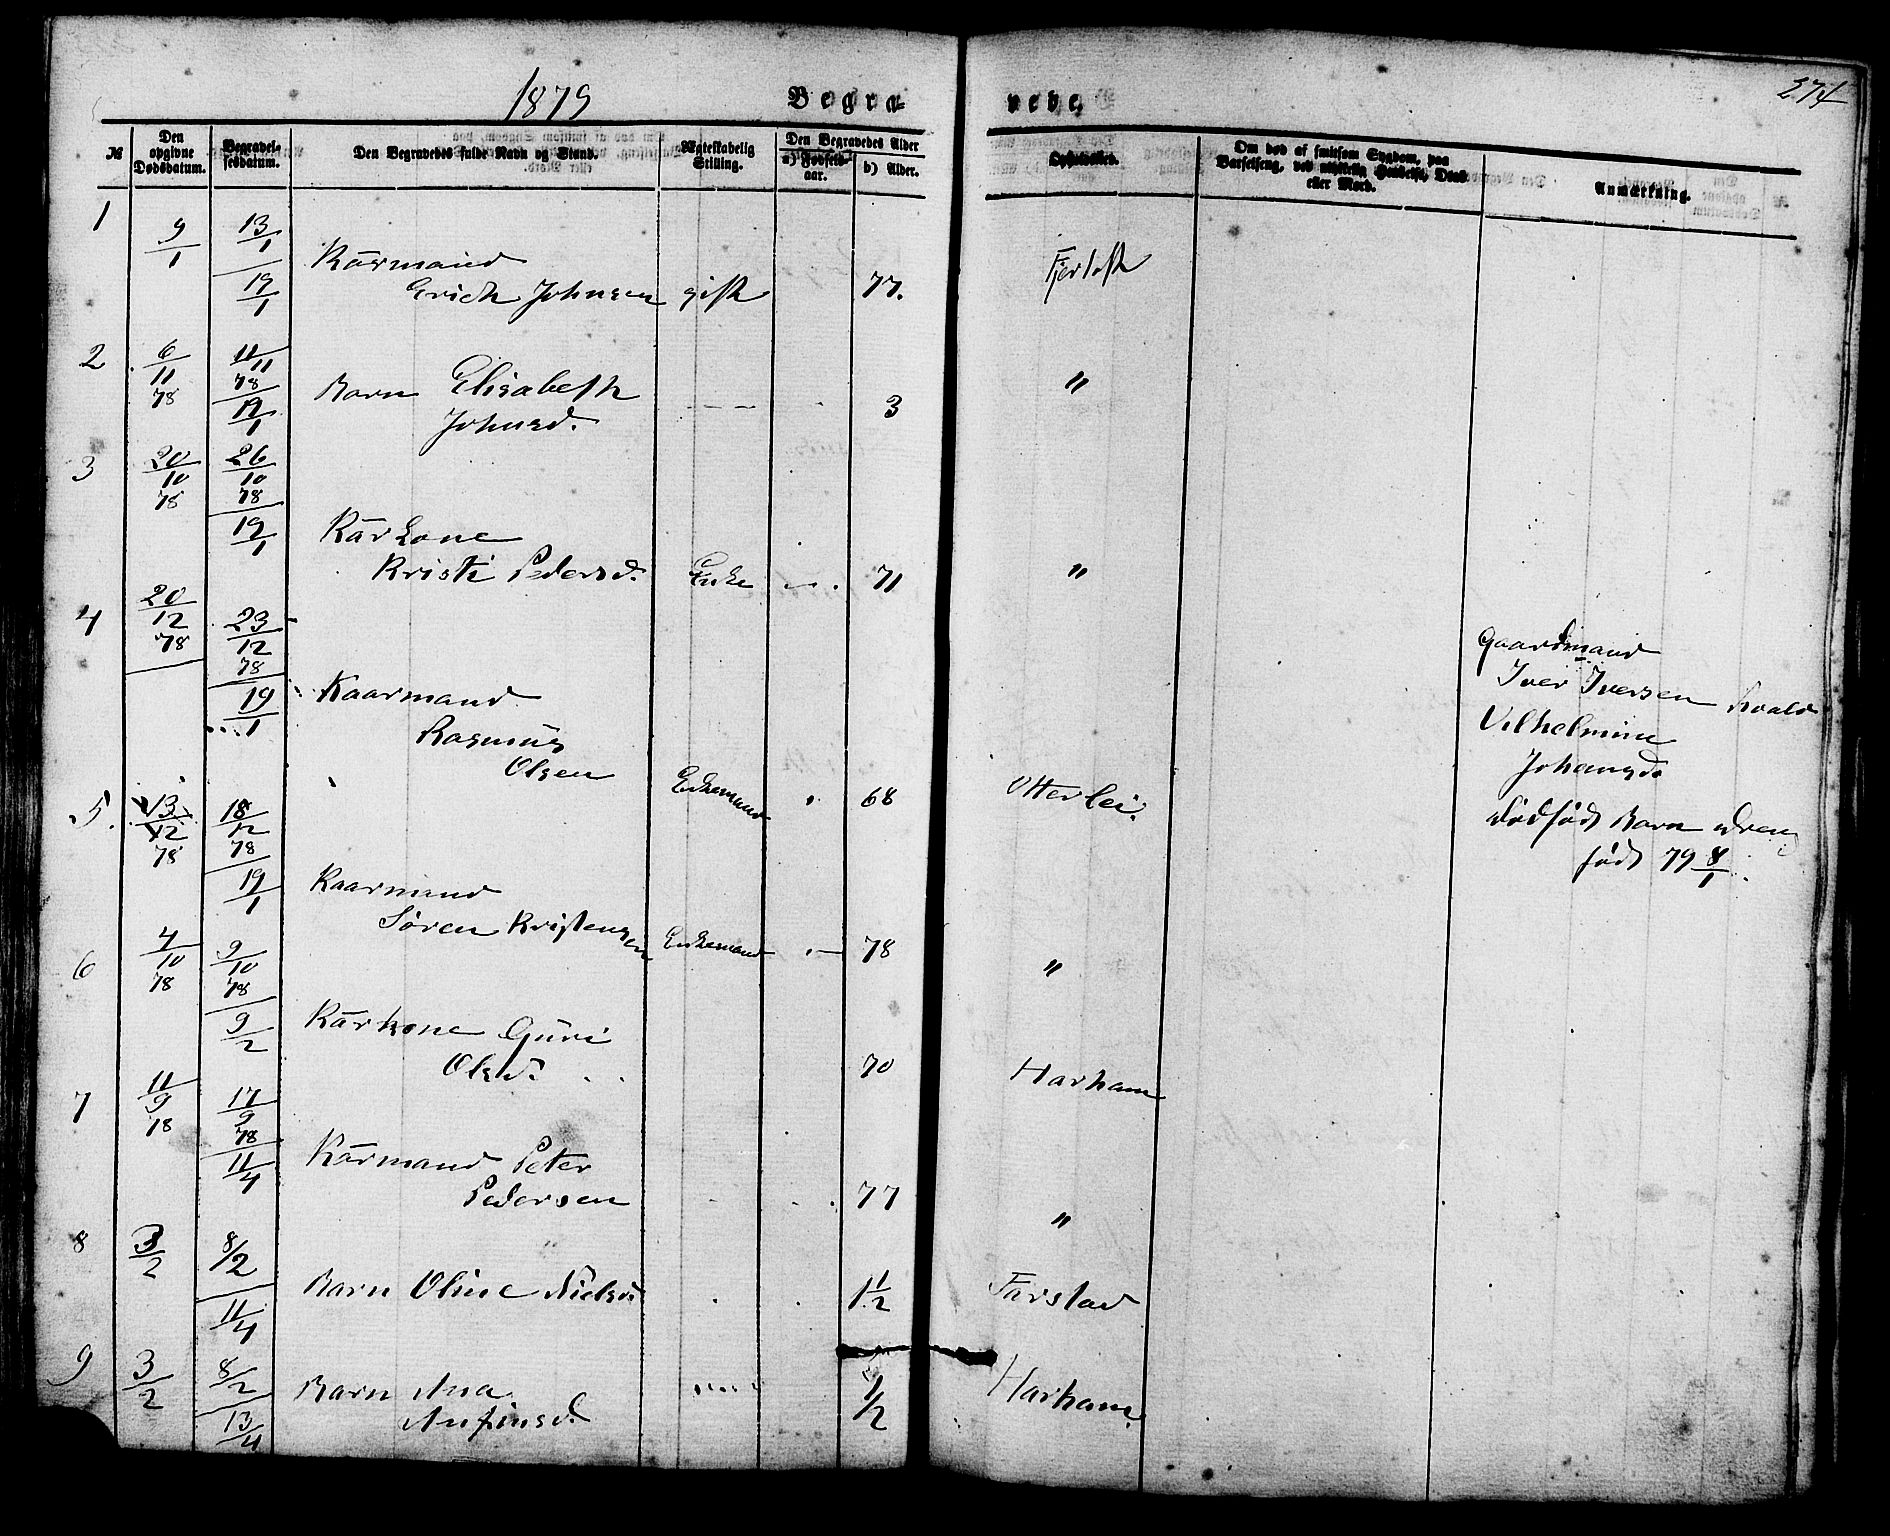 1879 Begra- vede. 274
№ Den opgivne Dødsdatum. Begravelsesdatum. Den Begravedes fulde Navn og Stand. Ægteskabelig Stilling. Den Begravedes Alder a) Fødselsaar. b) Alder. Opholdssted. Om død af smitsom Sygdom, paa Barselseng, ved ulykkelig Hændelse, Drab eller Mord. Anmærkning.
1 9/1 13/1
19/1 Kårmand
Erich Johnsen gift 77. Fjørtoft
2 6/11 78 11/11 78
19/1 Barn Elisabeth
Johnsd. 3 "
3 20/10 78 26/10 78
19/1 Kårkone
Kristi Pedersd. Enke 71 "
4 20/12 78 23/12 78
19/1 Kaarmand
Rasmus
Olsen Enkemand 68 Otterlei.
Gaardmand
Iver Iversen Roald
Vilhelmine
Johansd.
dødfødt Barn Dreng
født 79 8/1.
5. 13/12 78 18/12 78
19/1 Kaarmand
Søren Kristensen Enkemand 78 "
6 4/10 78 9/10 78
9/2 Kårkone Guri
Olsd. 70 Harham
7 11/9 78 17/9 78
11/4 Kårmand Peter
Pedersen 77 "
8 3/2 8/2
11/4 Barn Oline Nielsd. 1 1/2 Farstad
9 3/2 8/2
13/4 Barn Ana
Anfinsd. 1/2 Harham.